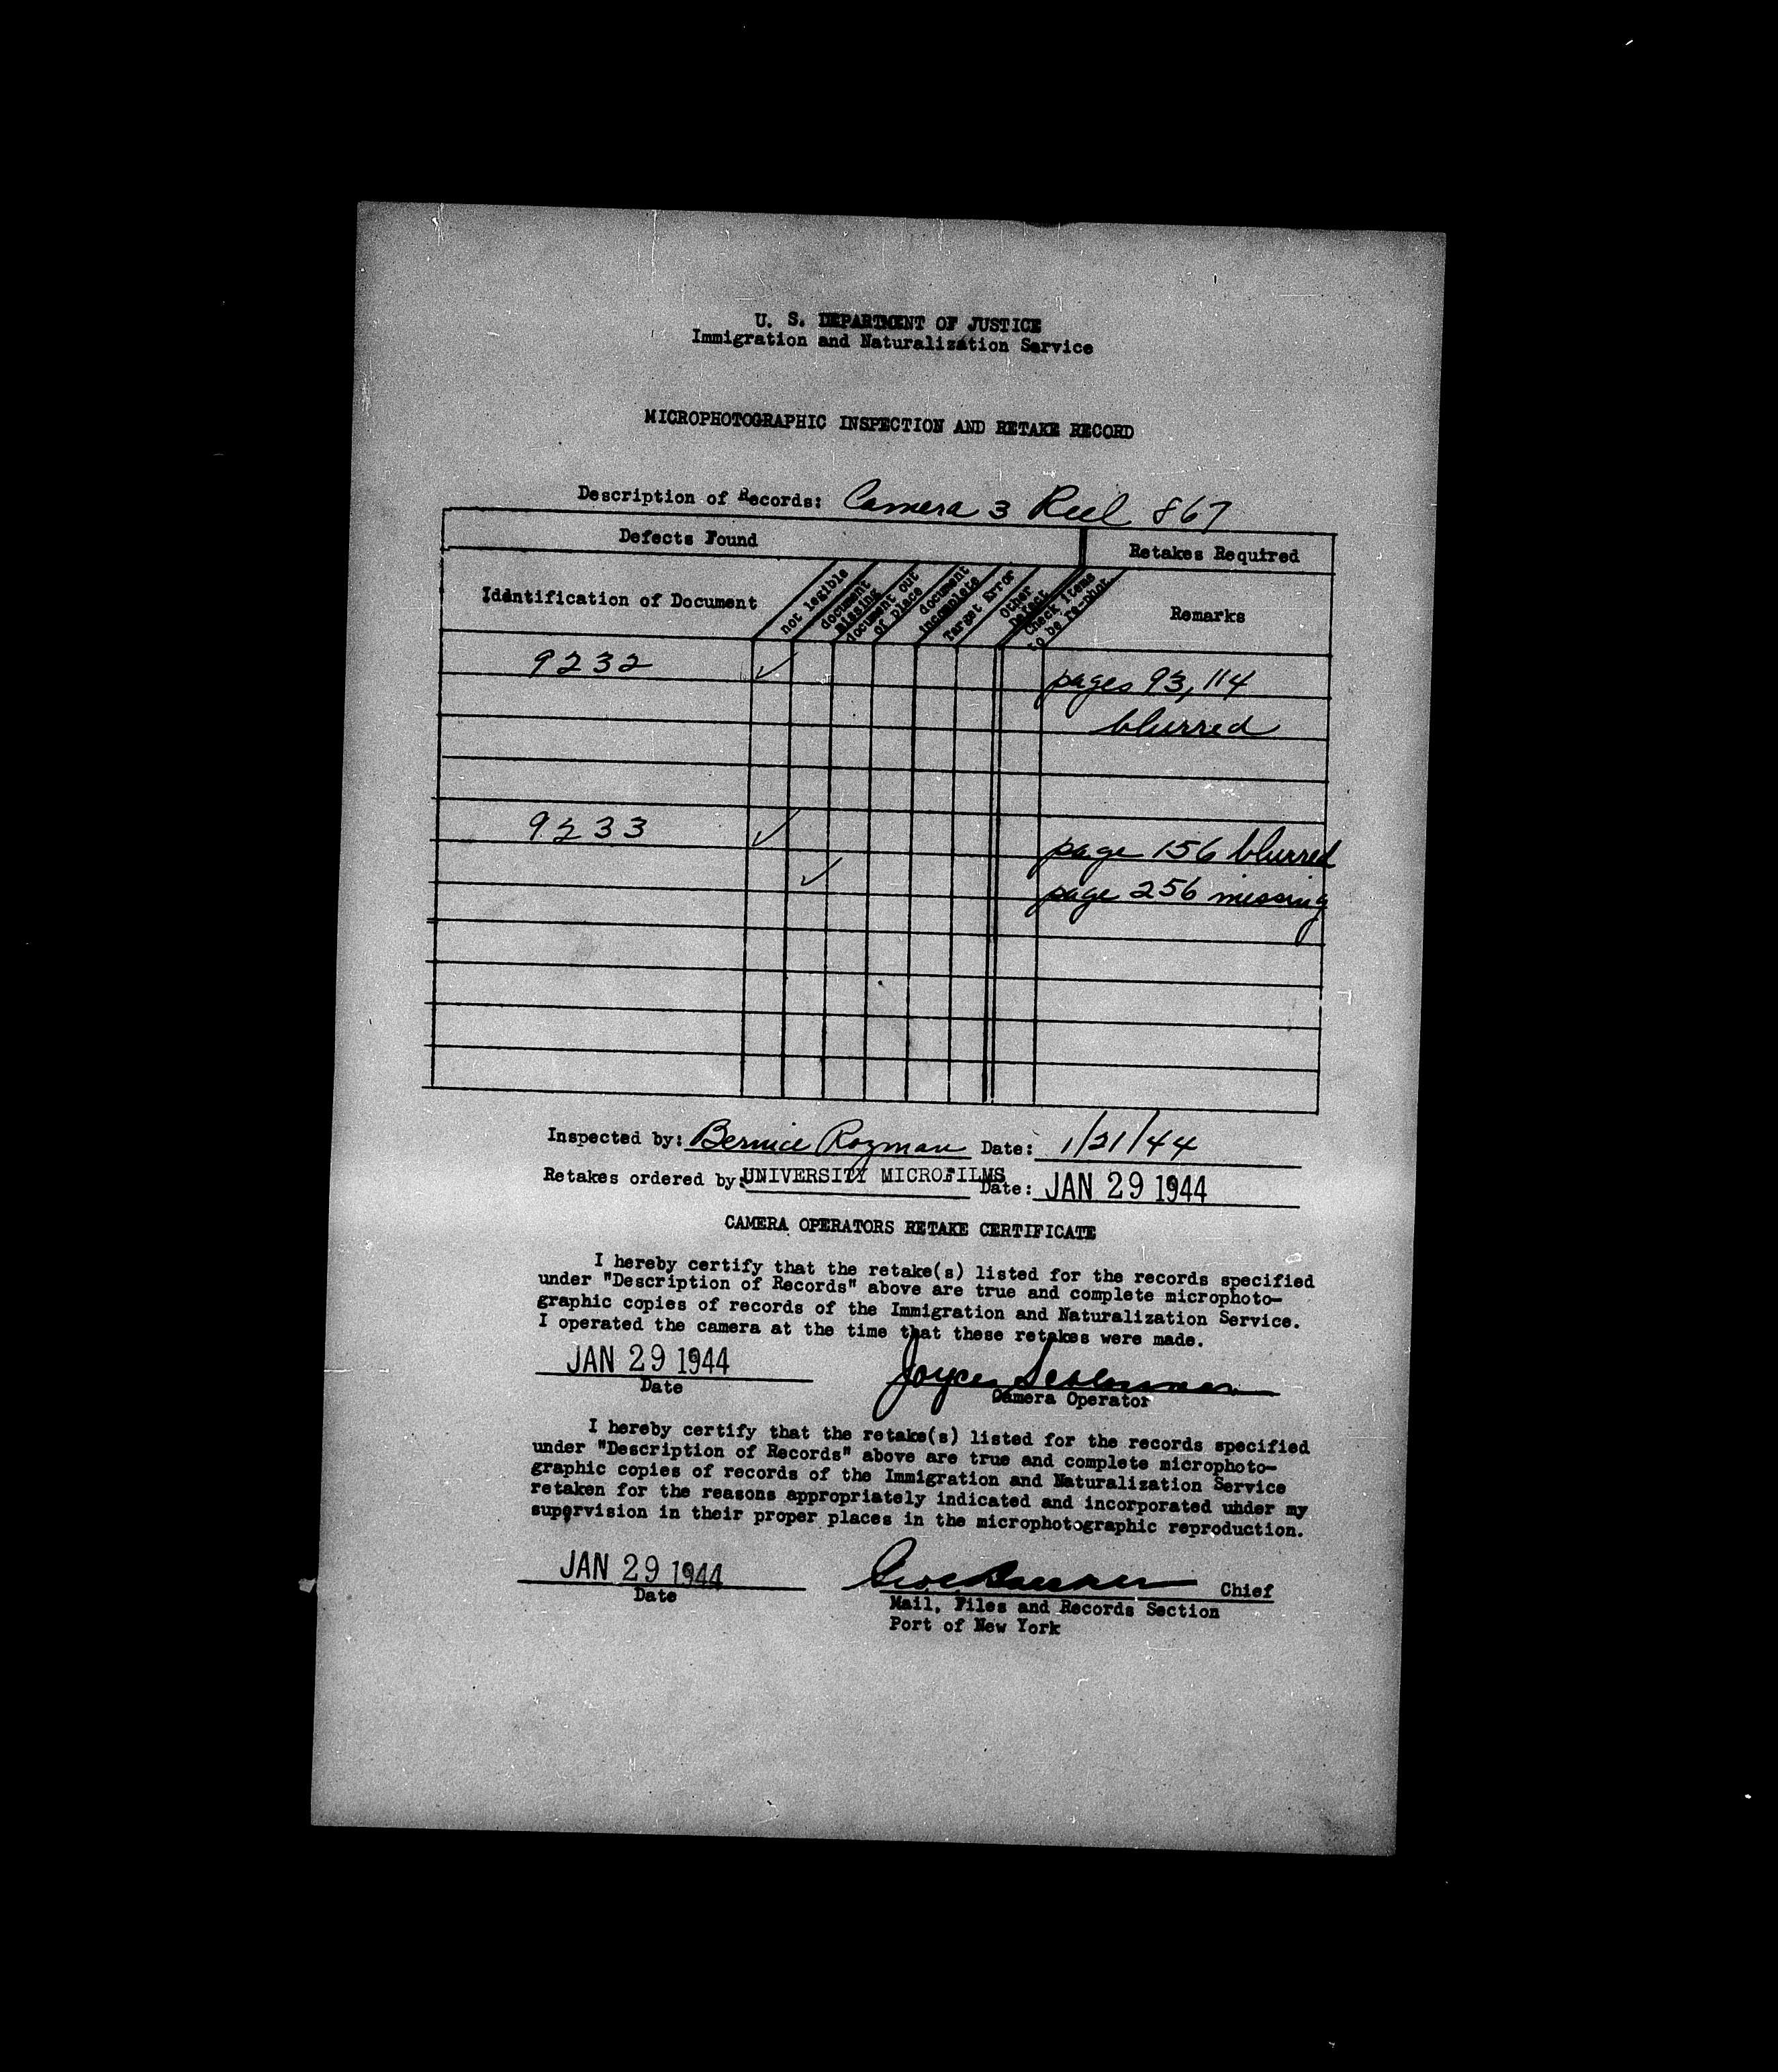 U. S. DEPARTMENT OF JUSTICE
Immigration and Naturalization Service
MICROPHOTOGRAPHIC INSPECTION AND RETAKE RECORD
Description of Records: Camera 3 Reel 867
Defects Found
Retakes Required
Identification of Document
not legible
document missing
document out of place
document incomplete
Target Error
Other Defect
Check Items to be re-phot.
Remarks
9232 ✓ pages 93, 114
blurred
9233 ✓ page 156 blurred
✓ page 256 missing
Inspected by: Bernice Rozman Date: 1/21/44
Retakes ordered by: UNIVERSITY MICROFILMS Date: JAN 29 1944
CAMERA OPERATORS RETAKE CERTIFICATE
I hereby certify that the retake(s) listed for the records specified
under "Description of Records" above are true and complete microphoto-
graphic copies of records of the Immigration and Naturalization Service.
I operated the camera at the time that these retakes were made.
JAN 29 1944 Joyce
Date Camera Operator
I hereby certify that the retake(s) listed for the records specified
under "Description of Records" above are true and complete microphoto-
graphic copies of records of the Immigration and Naturalization Service
retaken for the reasons appropriately indicated and incorporated under my
supervision in their proper places in the microphotographic reproduction.
JAN 29 1944 Chief
Date Mail, Files and Records Section
Port of New York